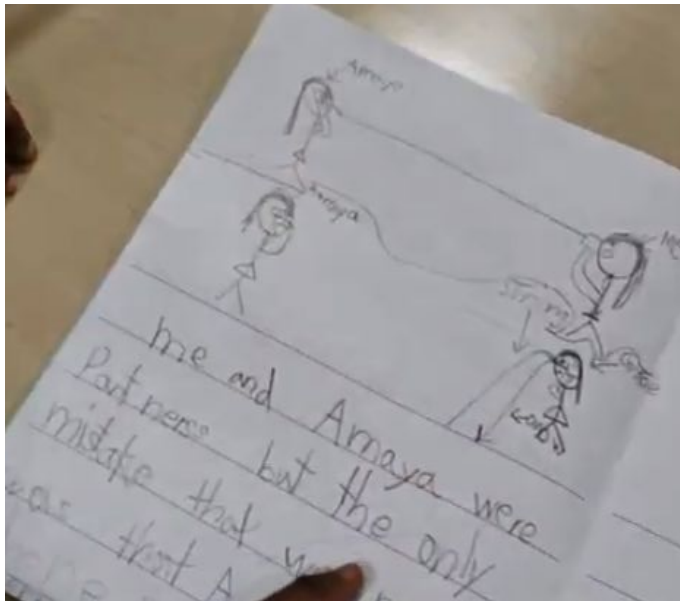 Amaya
Me
Amaya
String
me and Amaya were
Partners but the only
mistake that
was that A